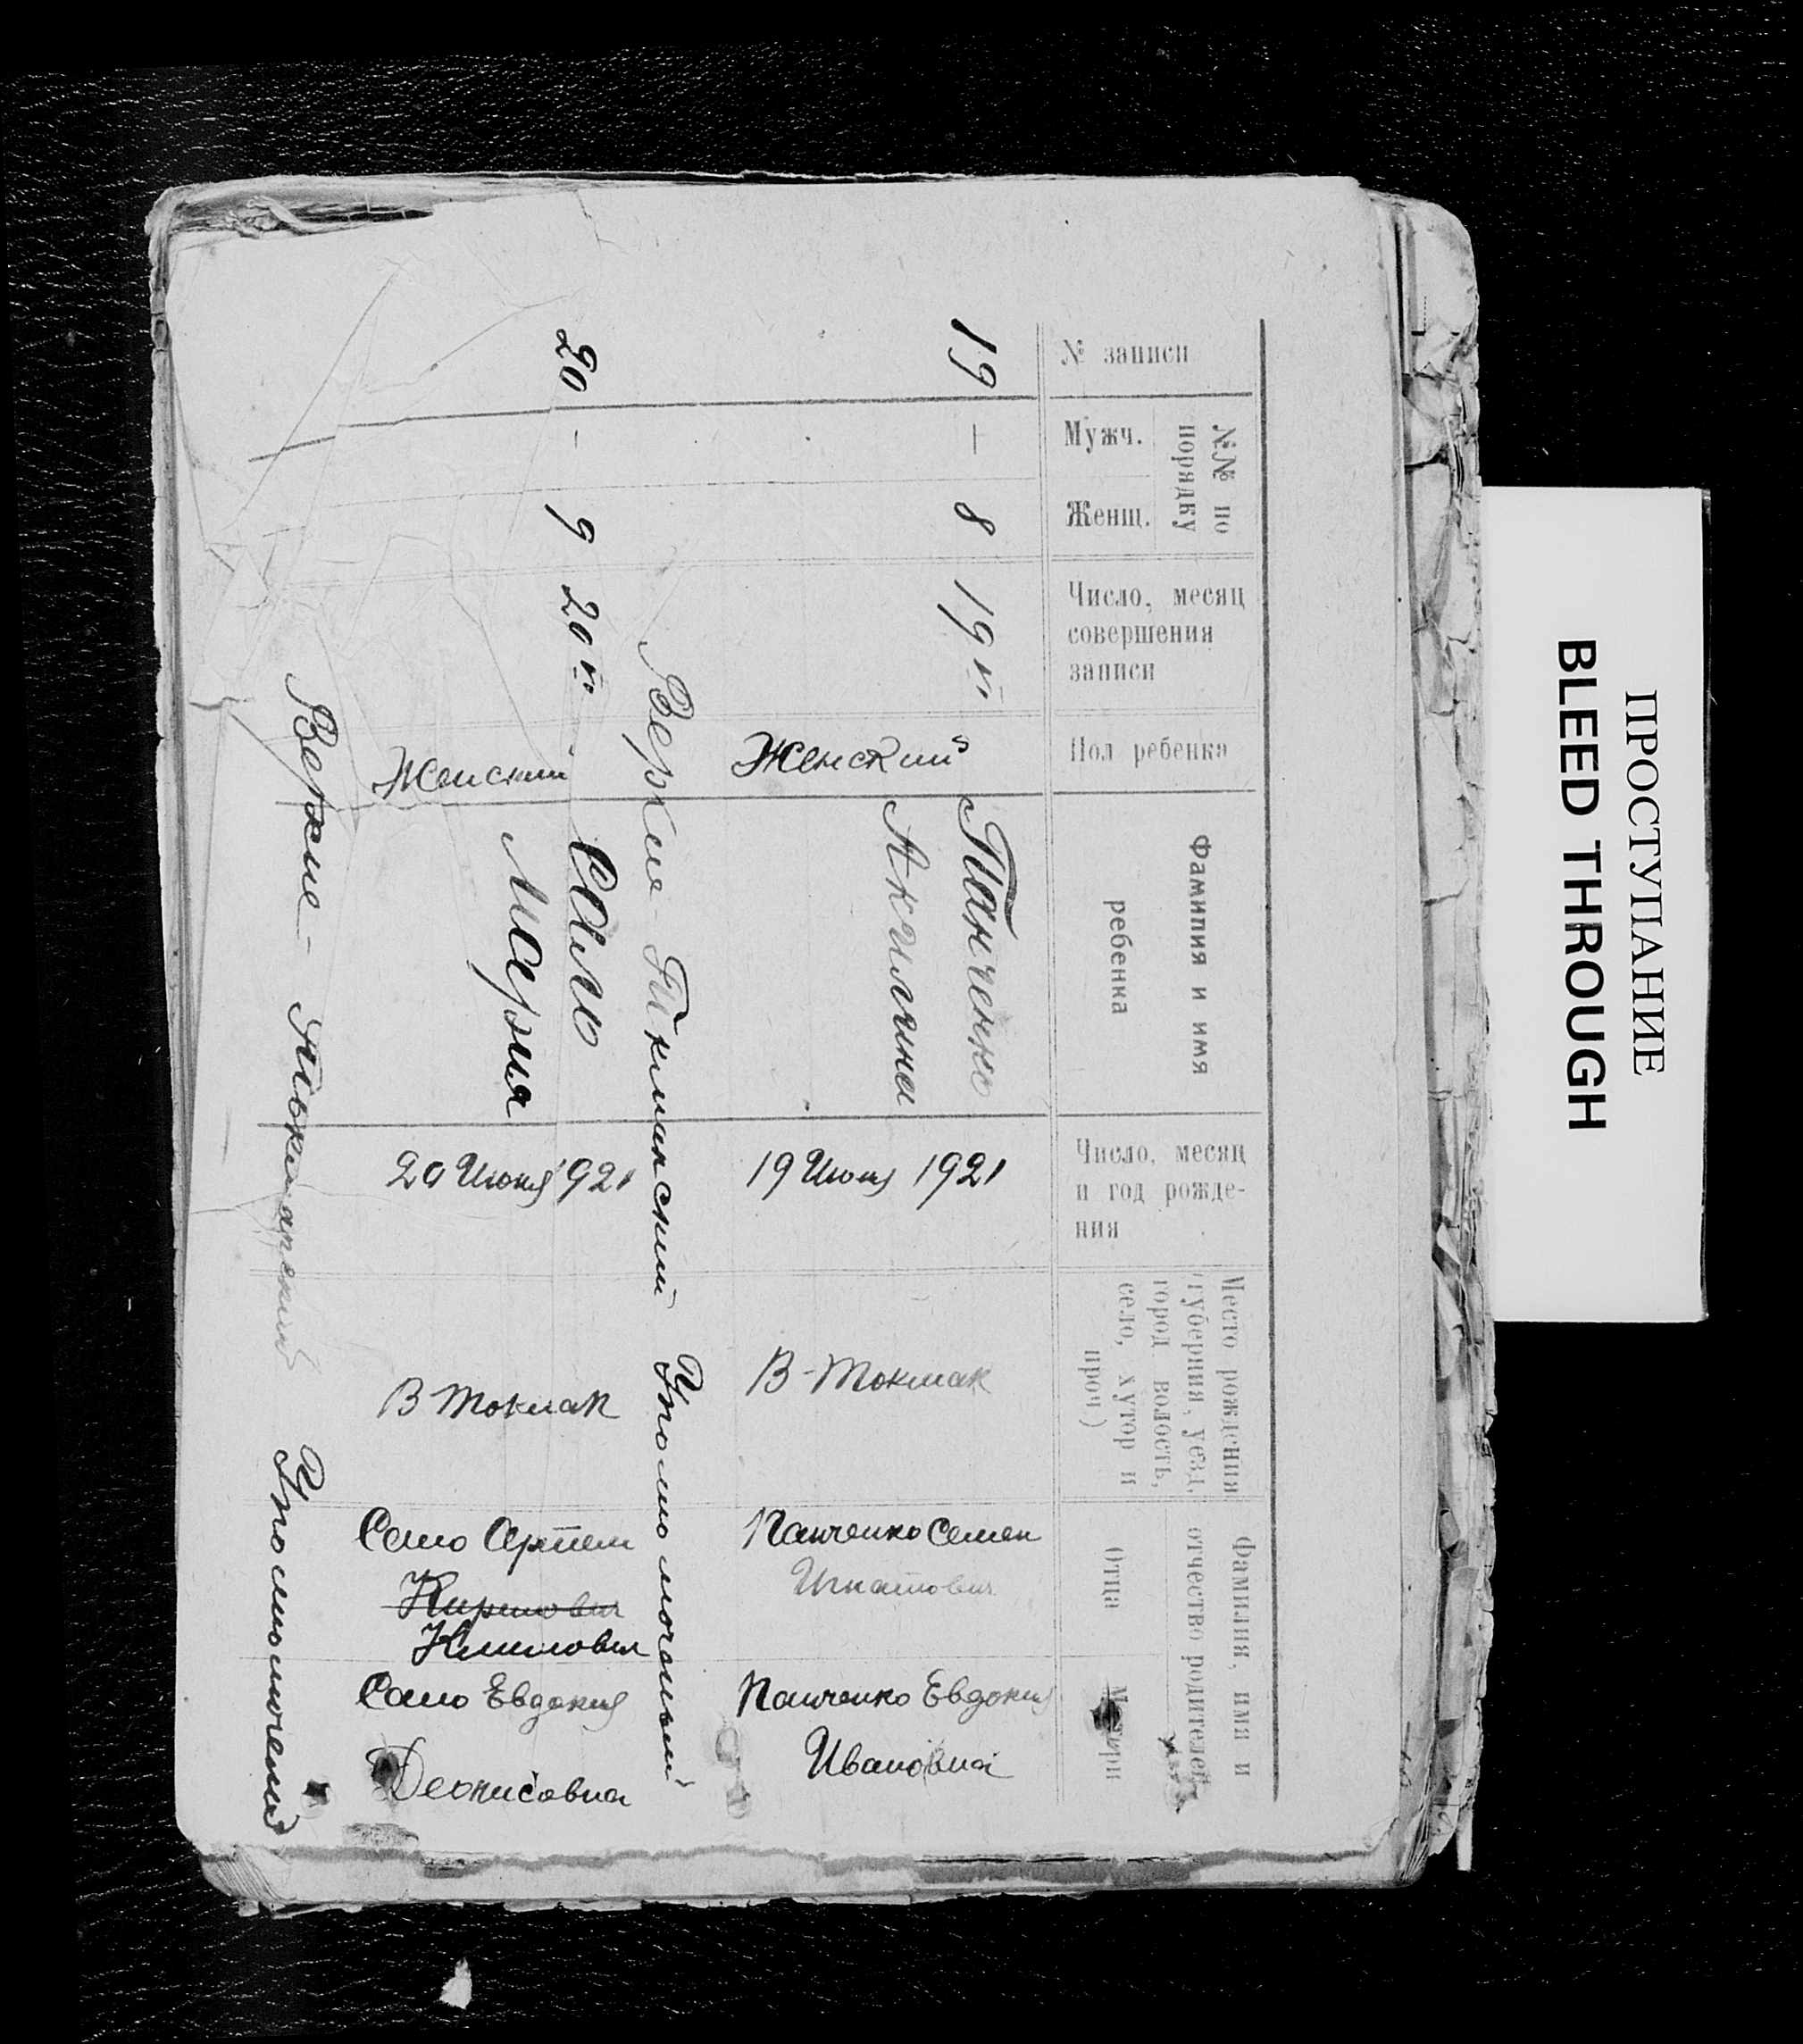 № записи
№№ по
порядку
Мужч.
Женщ.
Число, месяц
совершения
записи
Пол ребенка
Фамилия и имя
ребенка
Число, месяц
и год рожде-
ния
Место рождения
(губерния, уезд,
город волость,
село, хутор и
проч.)
Фамилия, имя и
отчество родителей
Отца
Матери
19
—
8
19 VI
Женский
Панченко
Акилина
19 Июня 1921
В-Токмак
Панченко Семен
Игнатович
Панченко Евдокия
Ивановна
Верхне-Токмакский Уполномоченый
20
—
9
20 VI
Женский
Сало
Мария
20 Июня 1921
В Токмак
Сало Артем
Сало Евдокия
Денисовна
Верхне-Токмакский Уполномоченый
ПРОСТУПАНИЕ
BLEED THROUGH